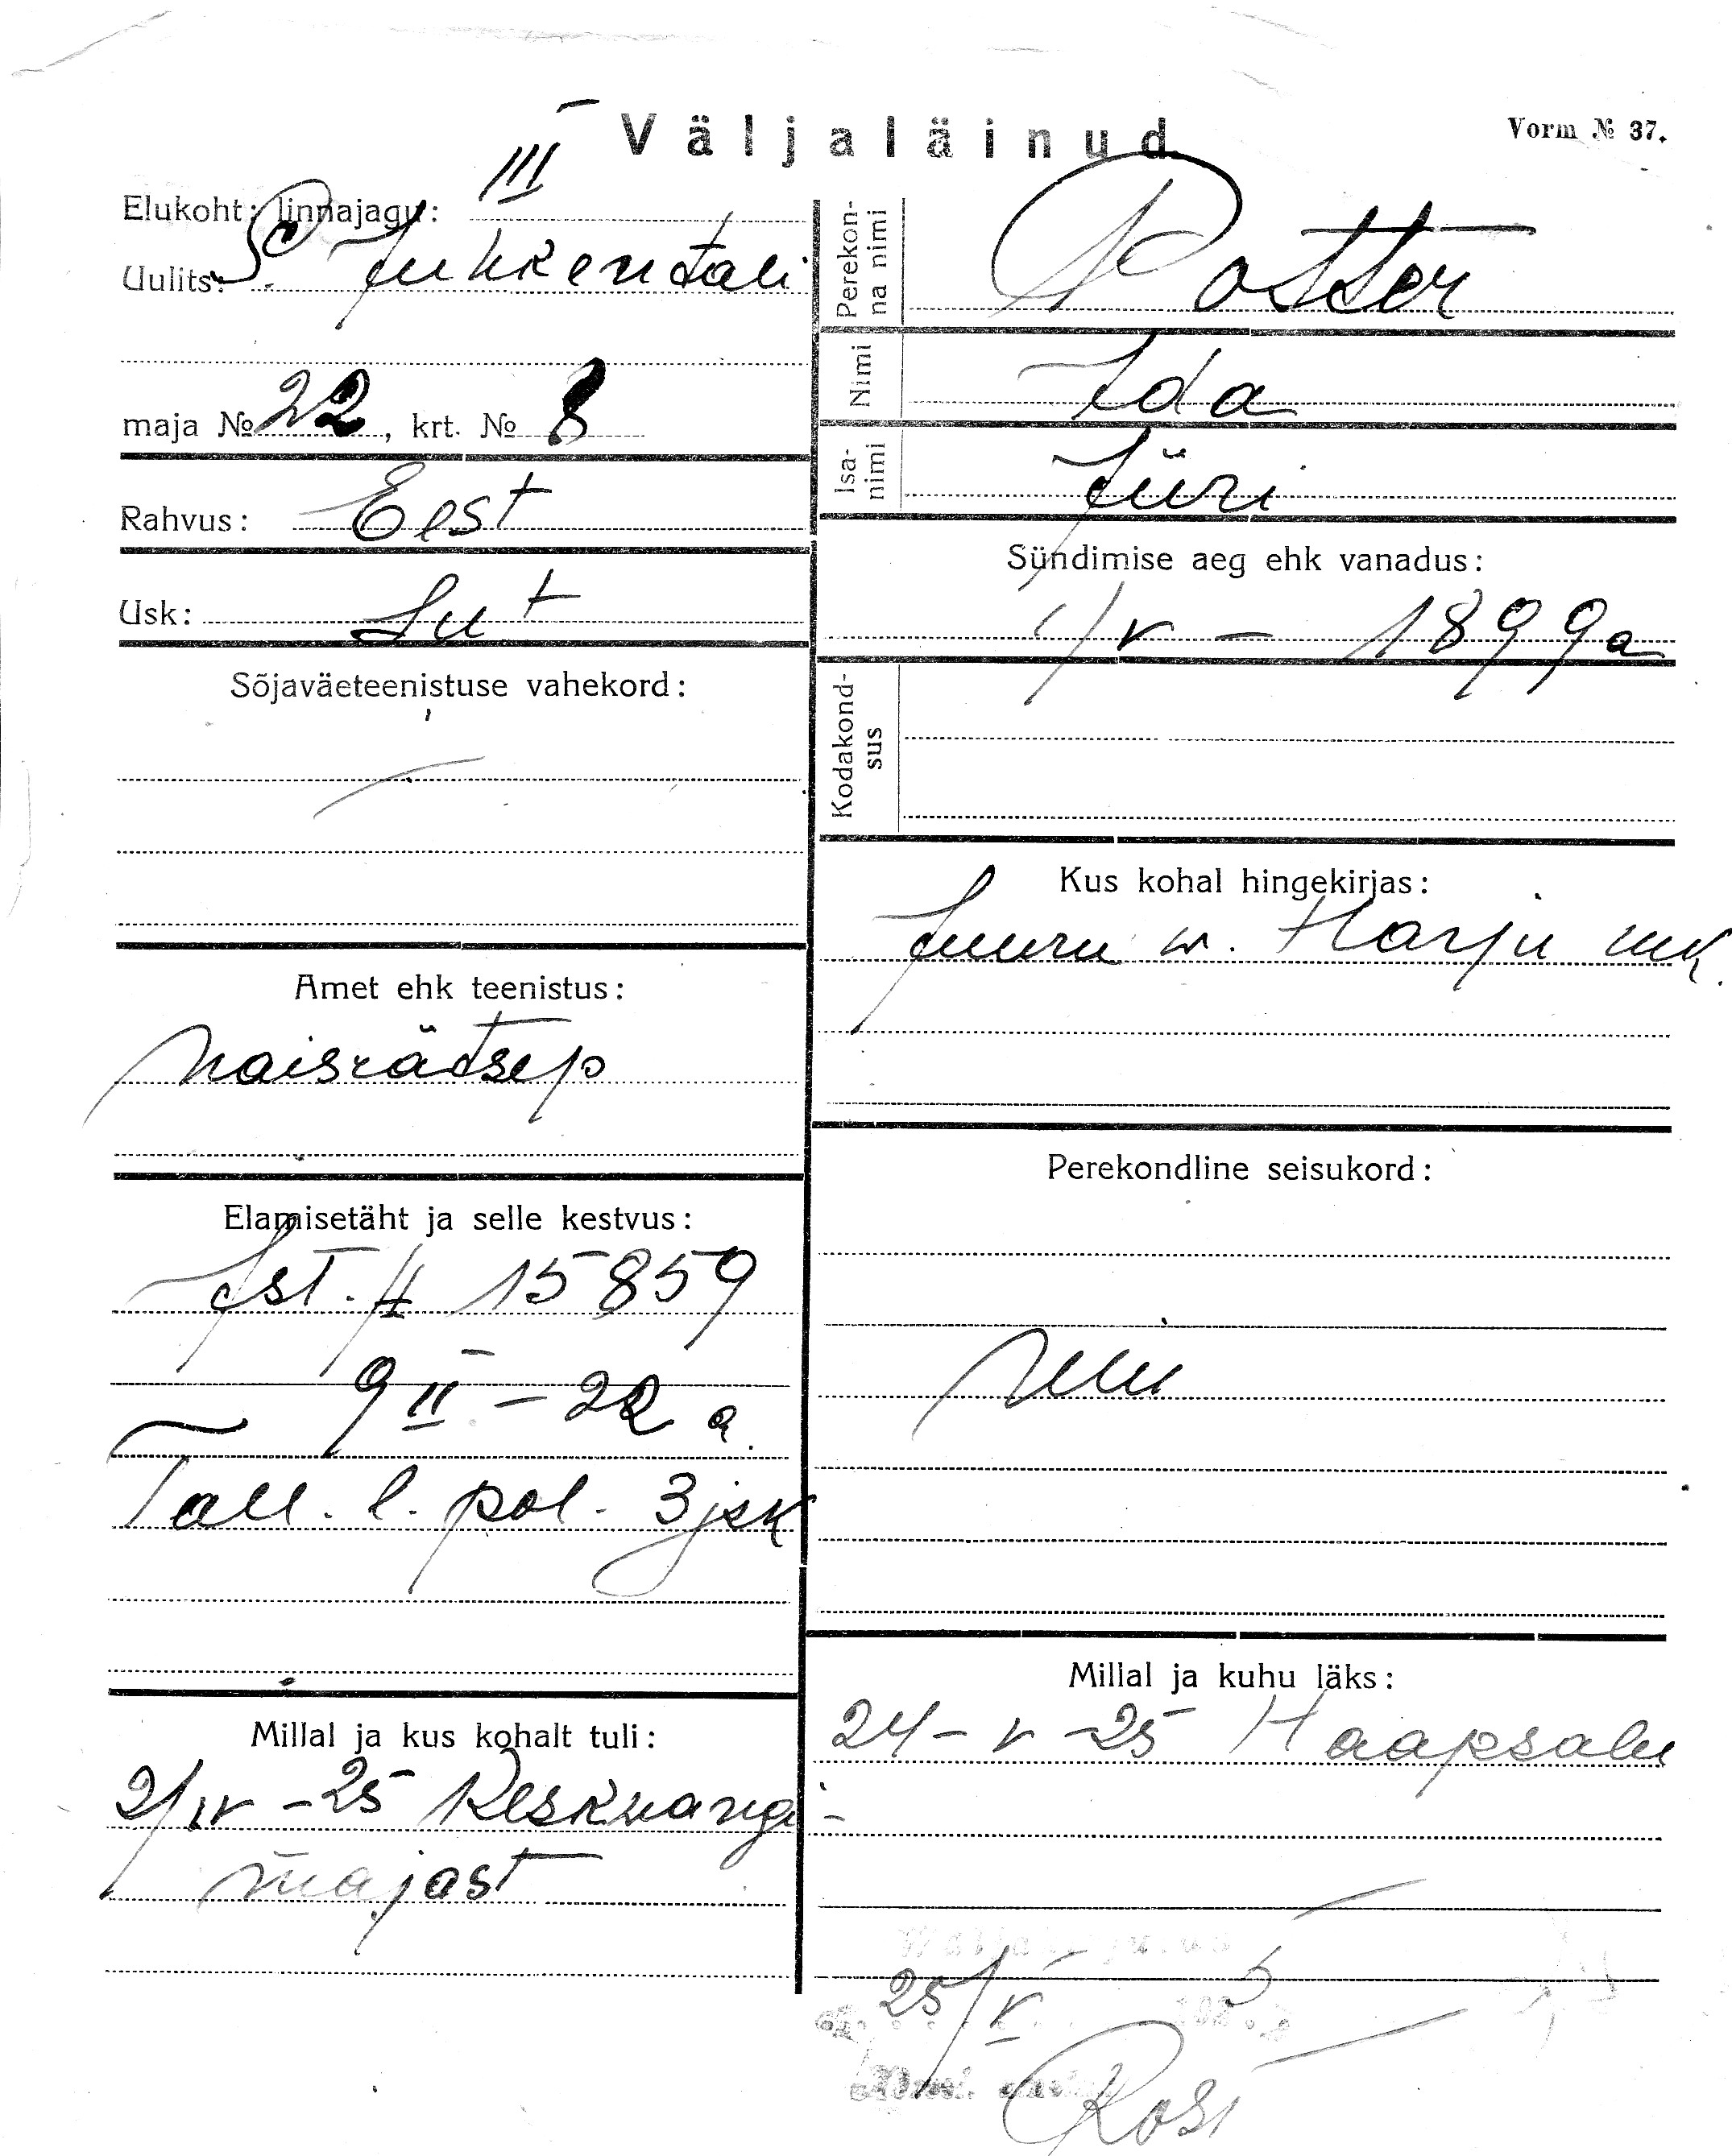 Väljaläinud
Vorm № 37.
Elukoht: linnajagu: III
Uulits: S. Juhkentali
maja № 22, krt. № 8
Rahvus: Eest
Usk: Lut
Sõjaväeteenistuse vahekord:
Amet ehk teenistus:
Naisrätsep
Elamisetäht ja selle kestvus:
Ist. # 15859
9 II - 22 a.
Tall. l. pol. 3 jsk
Millal ja kus kohalt tuli:
2/IV - 25 Keskvangi-
majast
Perekon-
na nimi
Potter
Nimi Ida
Isa-
nimi
Jüri
Sündimise aeg ehk vanadus:
1/V - 1899 a
Kodakond-
sus
Kus kohal hingekirjas:
Juuru w. Harju mk.
Perekondline seisukord:
Millal ja kuhu läks:
24 - V - 25 Haapsalu
25/V 5